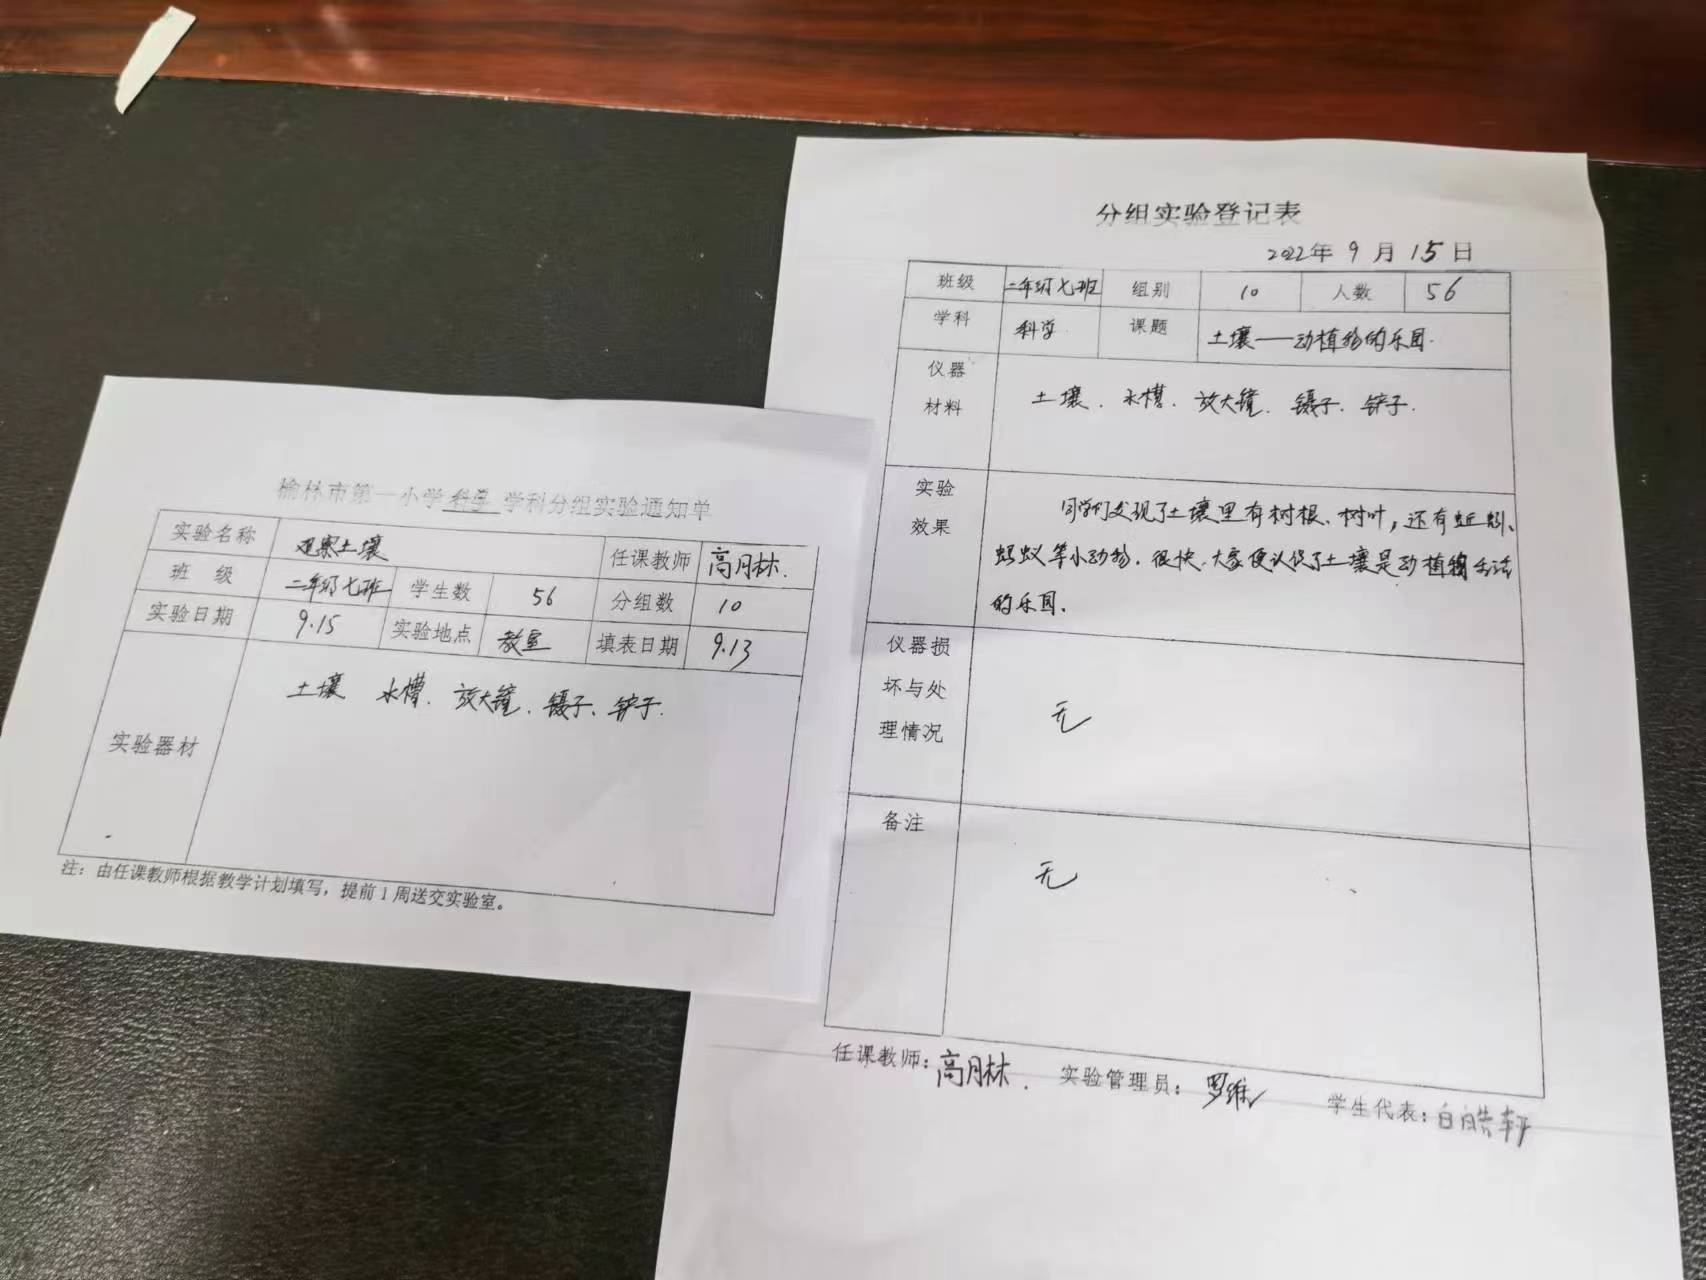 榆林市第一小学 科学 学科分组实验通知单
实验名称 观察土壤 任课教师 高月林.
班 级 二年级七班 学生数 56 分组数 10
实验日期 9.15 实验地点 教室 填表日期 9.13
实验器材 土壤 水槽、放大镜、镊子、铲子.
注：由任课教师根据教学计划填写，提前1周送交实验室。
分组实验登记表
2022年 9 月 15 日
班级 二年级七班 组别 10 人数 56
学科 科学 课题 土壤——动植物的乐园.
仪器
材料
土壤、水槽、放大镜、镊子、铲子.
实验
效果
同学们发现了土壤里有树根、树叶，还有蚯蚓、
蚂蚁等小动物.很快,大家便认识了土壤是动植物生活
的乐园.
仪器损
坏与处
理情况
无
备注
无
任课教师：高月林. 实验管理员：罗维 学生代表：白皓轩